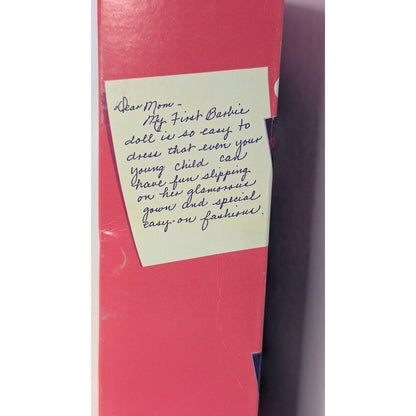 Dear Mom -
My First Barbie
doll is so easy to
dress that even your
young child can
have fun slipping
on her glamorous
gown and special
easy-on fashions.